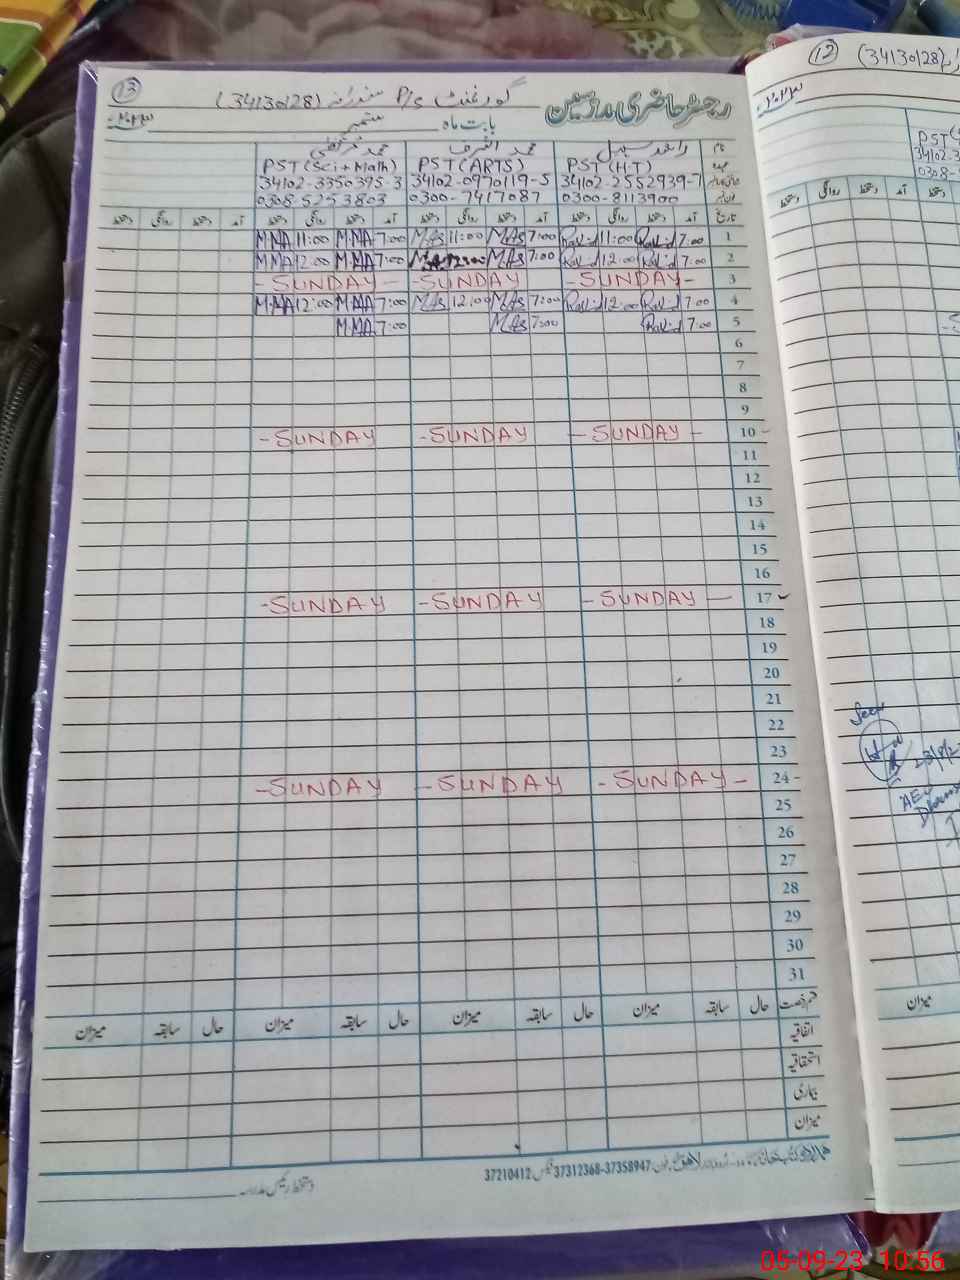 13 گورنمنٹ P/S (34130128) رجسٹر حاضری مدرسین
بابت ماہ ستمبر ۲۰۲۳
محمد مرتضیٰ محمد اشرف راشد سہیل نام
PST (Sci + Math) PST (ARTS) PST (H-T) عہدہ
34102-3350395-3 34102-0970119-5 34102-2552939-7
0308-5253803 0300-7417087 0300-8113900
دستخط روانگی دستخط آمد دستخط روانگی دستخط آمد دستخط روانگی دستخط آمد دستخط روانگی دستخط آمد تاریخ
M.MA 11:00 M.MA 7:00 MAs 11:00 MAs 7:00 Rashid 11:00 Rashid 7:00 1
M.MA 12:00 M.MA 7:00 MAs 12:00 MAs 7:00 Rashid 12:00 Rashid 7:00 2
- SUNDAY - - SUNDAY - - SUNDAY - 3
M.MA 12:00 M.MA 7:00 MAs 12:00 MAs 7:00 Rashid 12:00 Rashid 7:00 4
M.MA 7:00 MAs 7:00 Rashid 7:00 5
6
7
8
9
- SUNDAY - SUNDAY - SUNDAY - 10 -
11
12
13
14
15
16
- SUNDAY - SUNDAY - SUNDAY - 17
18
19
20
21
22
23
- SUNDAY - SUNDAY - SUNDAY - 24 -
25
26
27
28
29
30
31
میزان سابقہ حال میزان سابقہ حال میزان سابقہ حال میزان سابقہ حال قسم رخصت
اتفاقیہ
استحقاقیہ
بیماری
میزان
37210412 فیکس 37312368-37358947 فون
دستخط رئیس مدرسہ
12 (34130128)
۲۰۲۳
PST (S
34102-3
0308-5
دستخط روانگی دستخط آمد دستخط
Seen
AEO
میزان
05-09-23 10:56